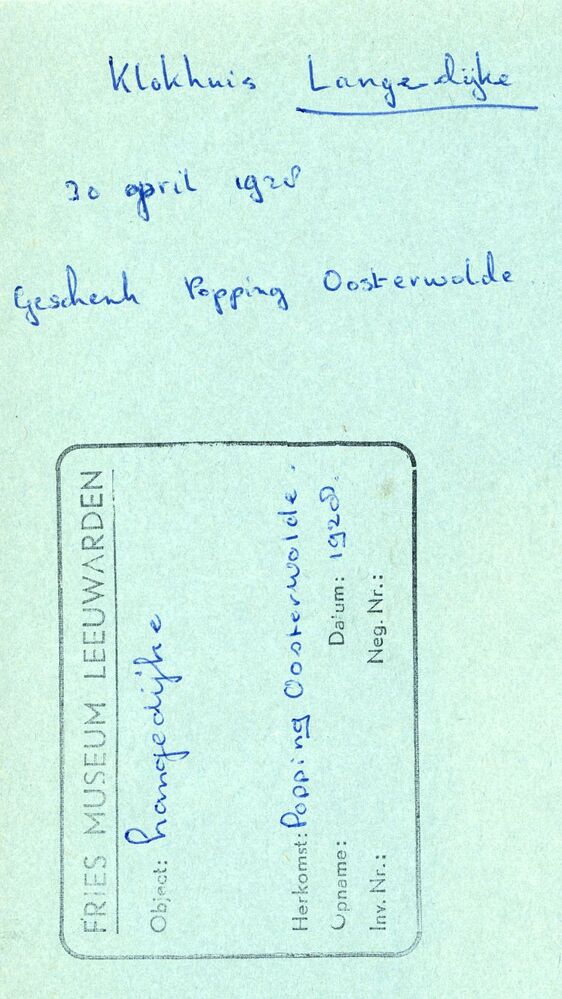 Klokhuis Langedijke
30 april 1928
Geschenk Popping Oosterwolde
FRIES MUSEUM LEEUWARDEN
Object: Langedijke
Herkomst: Popping Oosterwolde.
Opname: Datum: 1928.
Inv. Nr.: Neg. Nr.: